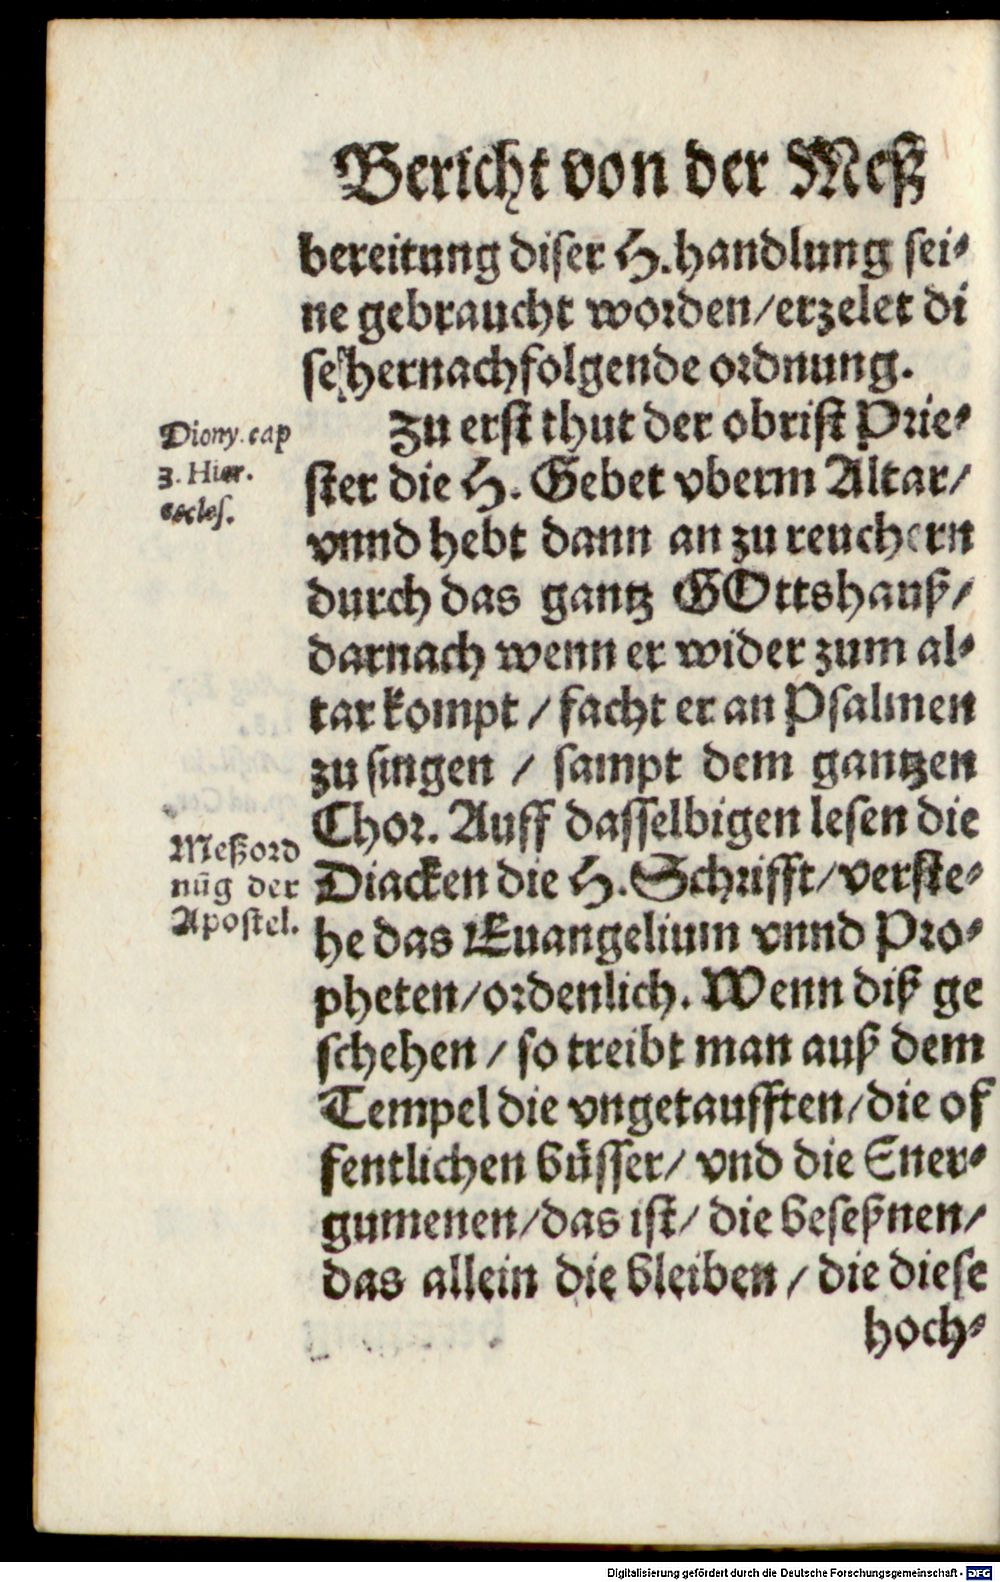 Bericht von der Meß
bereitung diser H. handlung sei⸗
ne gebraucht worden/erzelet di
se hernachfolgende ordnung.
Zu erst thut der obrist Prie⸗
ster die H. Gebet vberm Altar/
vnnd hebt dann an zu reuchern
durch das gantz GOttshauß/
darnach wenn er wider zum al⸗
tar kompt / facht er an Psalmen
zu singen / sampt dem gantzen
Chor. Auff dasselbigen lesen die
Diacken die H. Schrifft/verste⸗
he das Euangelium vnnd Pro⸗
pheten/ordenlich. Wenn diß ge
schehen / so treibt man auß dem
Tempel die vngetaufften/die of
fentlichen büsser/ vnd die Ener⸗
gumenen/das ist/ die beseßnen/
das allein die bleiben / die diese
hoch⸗
Diony. cap
3. Hier.
eccles.
Meßord
nūg der
Apostel.
Digitalisierung gefördert durch die Deutsche Forschungsgemeinschaft - DFG